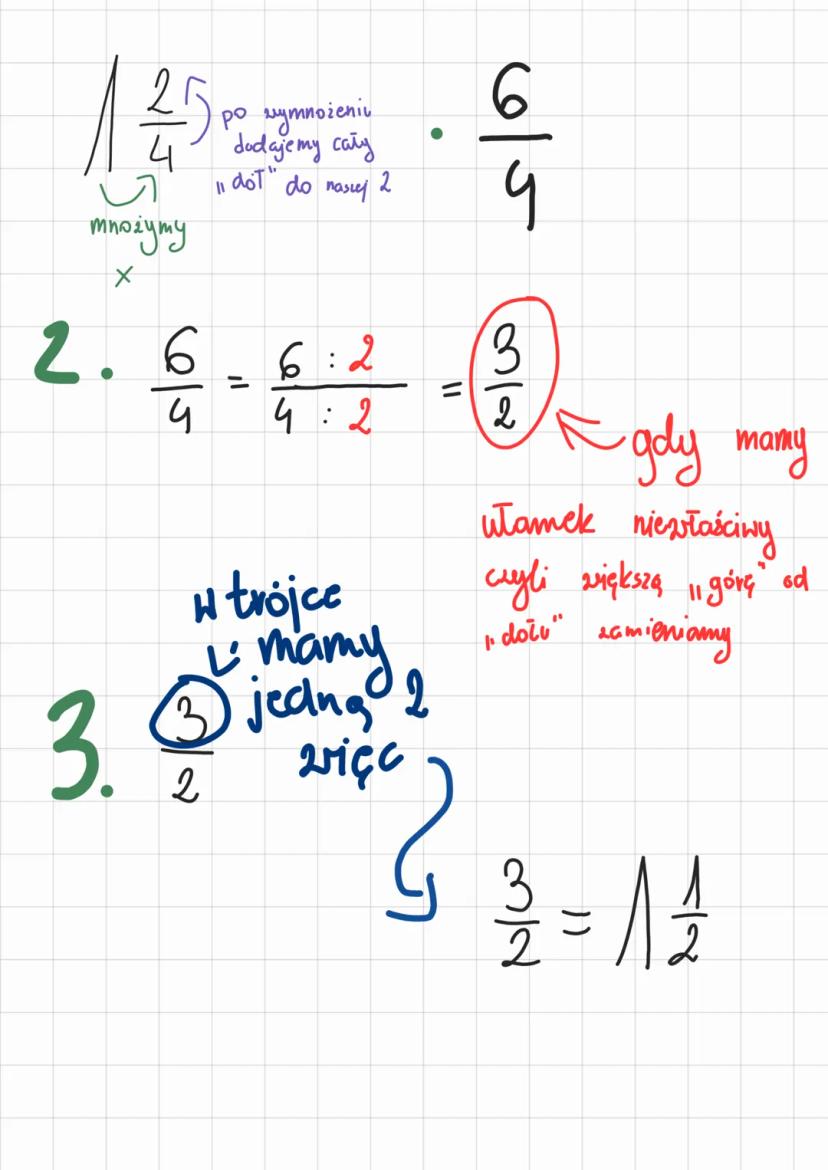 1 2/4 · 6/4
po wymnożeniu
dodajemy cały
„dół" do naszej 2
mnożymy
x
2. 6/4 = 6 : 2 / 4 : 2 = 3/2
gdy mamy
ułamek niewłaściwy
czyli większą „górę" od
„dołu" zamieniamy
w trójce
mamy
jedną 2
więc
3. 3/2
3/2 = 1 1/2